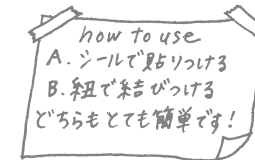 how to use
A.シールで貼りつける
B.紐で結びつける
どちらもとても簡単です!